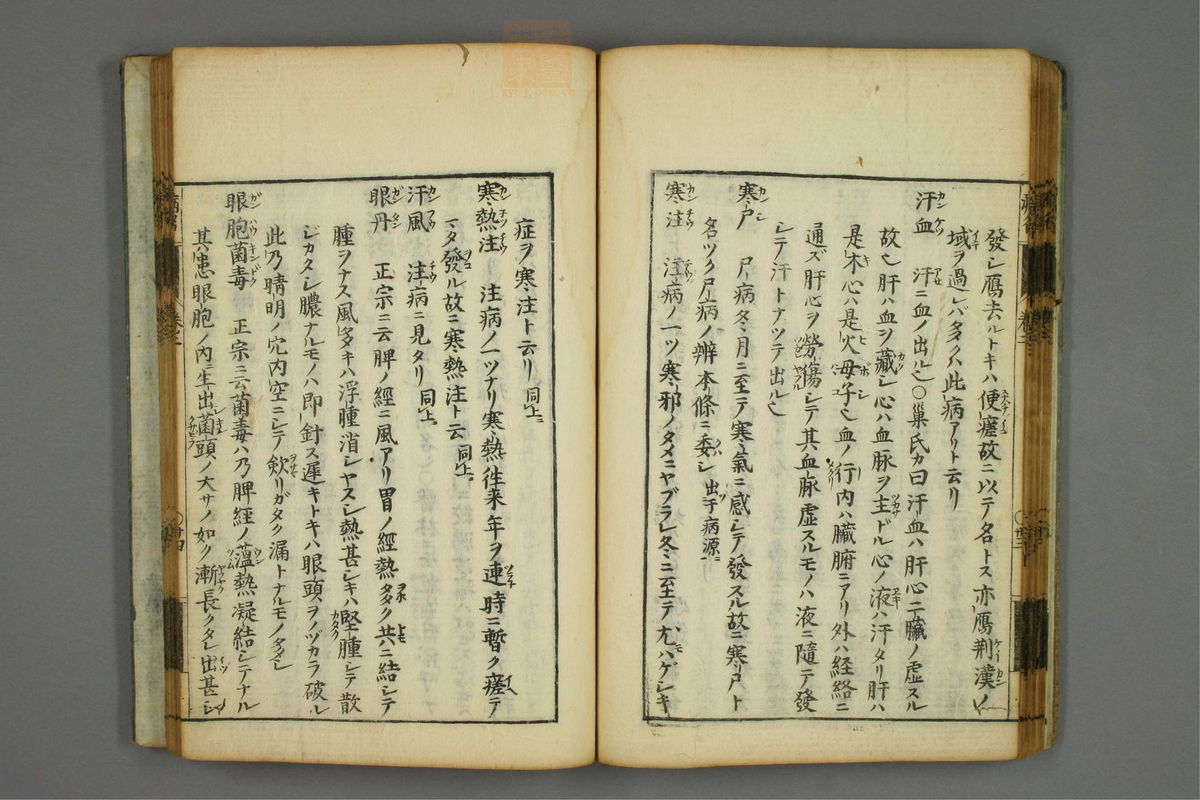 發シ鴈去ルトキハ便瘥故ニ以テ名トス亦鴈荆漢ノ
域ヲ過レバ多クハ此病アリト云リ
汗血 汗ニ血ノ出ル也○巢氏カ曰汗血ハ肝心ニ臟ノ虚スル
故也肝ハ血ヲ藏シ心ハ血脉ヲ主ドル心ノ液ハ汗タリ肝ハ
是木心ハ是火母子也血ノ行内ハ臟腑ニアリ外ハ経絡ニ
通ズ肝心ヲ勞傷シテ其血脉虚スルモノハ液ニ隨テ發
シテ汗トナツテ出ル也
寒尸 尸病冬月ニ至テ寒氣ニ感シテ發スル故ニ寒尸ト
名ツク尸病ノ辨本條ニ委シ出于病源ニ
寒注 注病ノ一ツ寒邪ノタメニヤブラレ冬ニ至テ尤ハゲシキ
症ヲ寒注ト云リ同上ニ
寒熱注 注病ノ一ツナリ寒熱徃来年ヲ連時ニ暫ク瘥テ
マタ發ル故ニ寒熱注ト云同上ニ
汗風 注病ニ見タリ同上ニ
眼丹 正宗ニ云脾ノ經ニ風アリ胃ノ經熱多ク共ニ結シテ
腫ヲナス風多キハ浮腫消シヤスシ熱甚シキハ堅腫シテ散
ジカタシ膿ナルモノハ即針ス遲キトキハ眼頭ヲノヅカラ破ル
此乃睛明ノ穴内空ニシテ歛リガタク漏トナルモノ多シ
眼胞菌毒 正宗ニ云菌毒ハ乃脾經ノ薀熱凝結シテナル
其患眼胞ノ内ニ生出菌頭ノ大サノ如ク漸長クタレ出甚シ